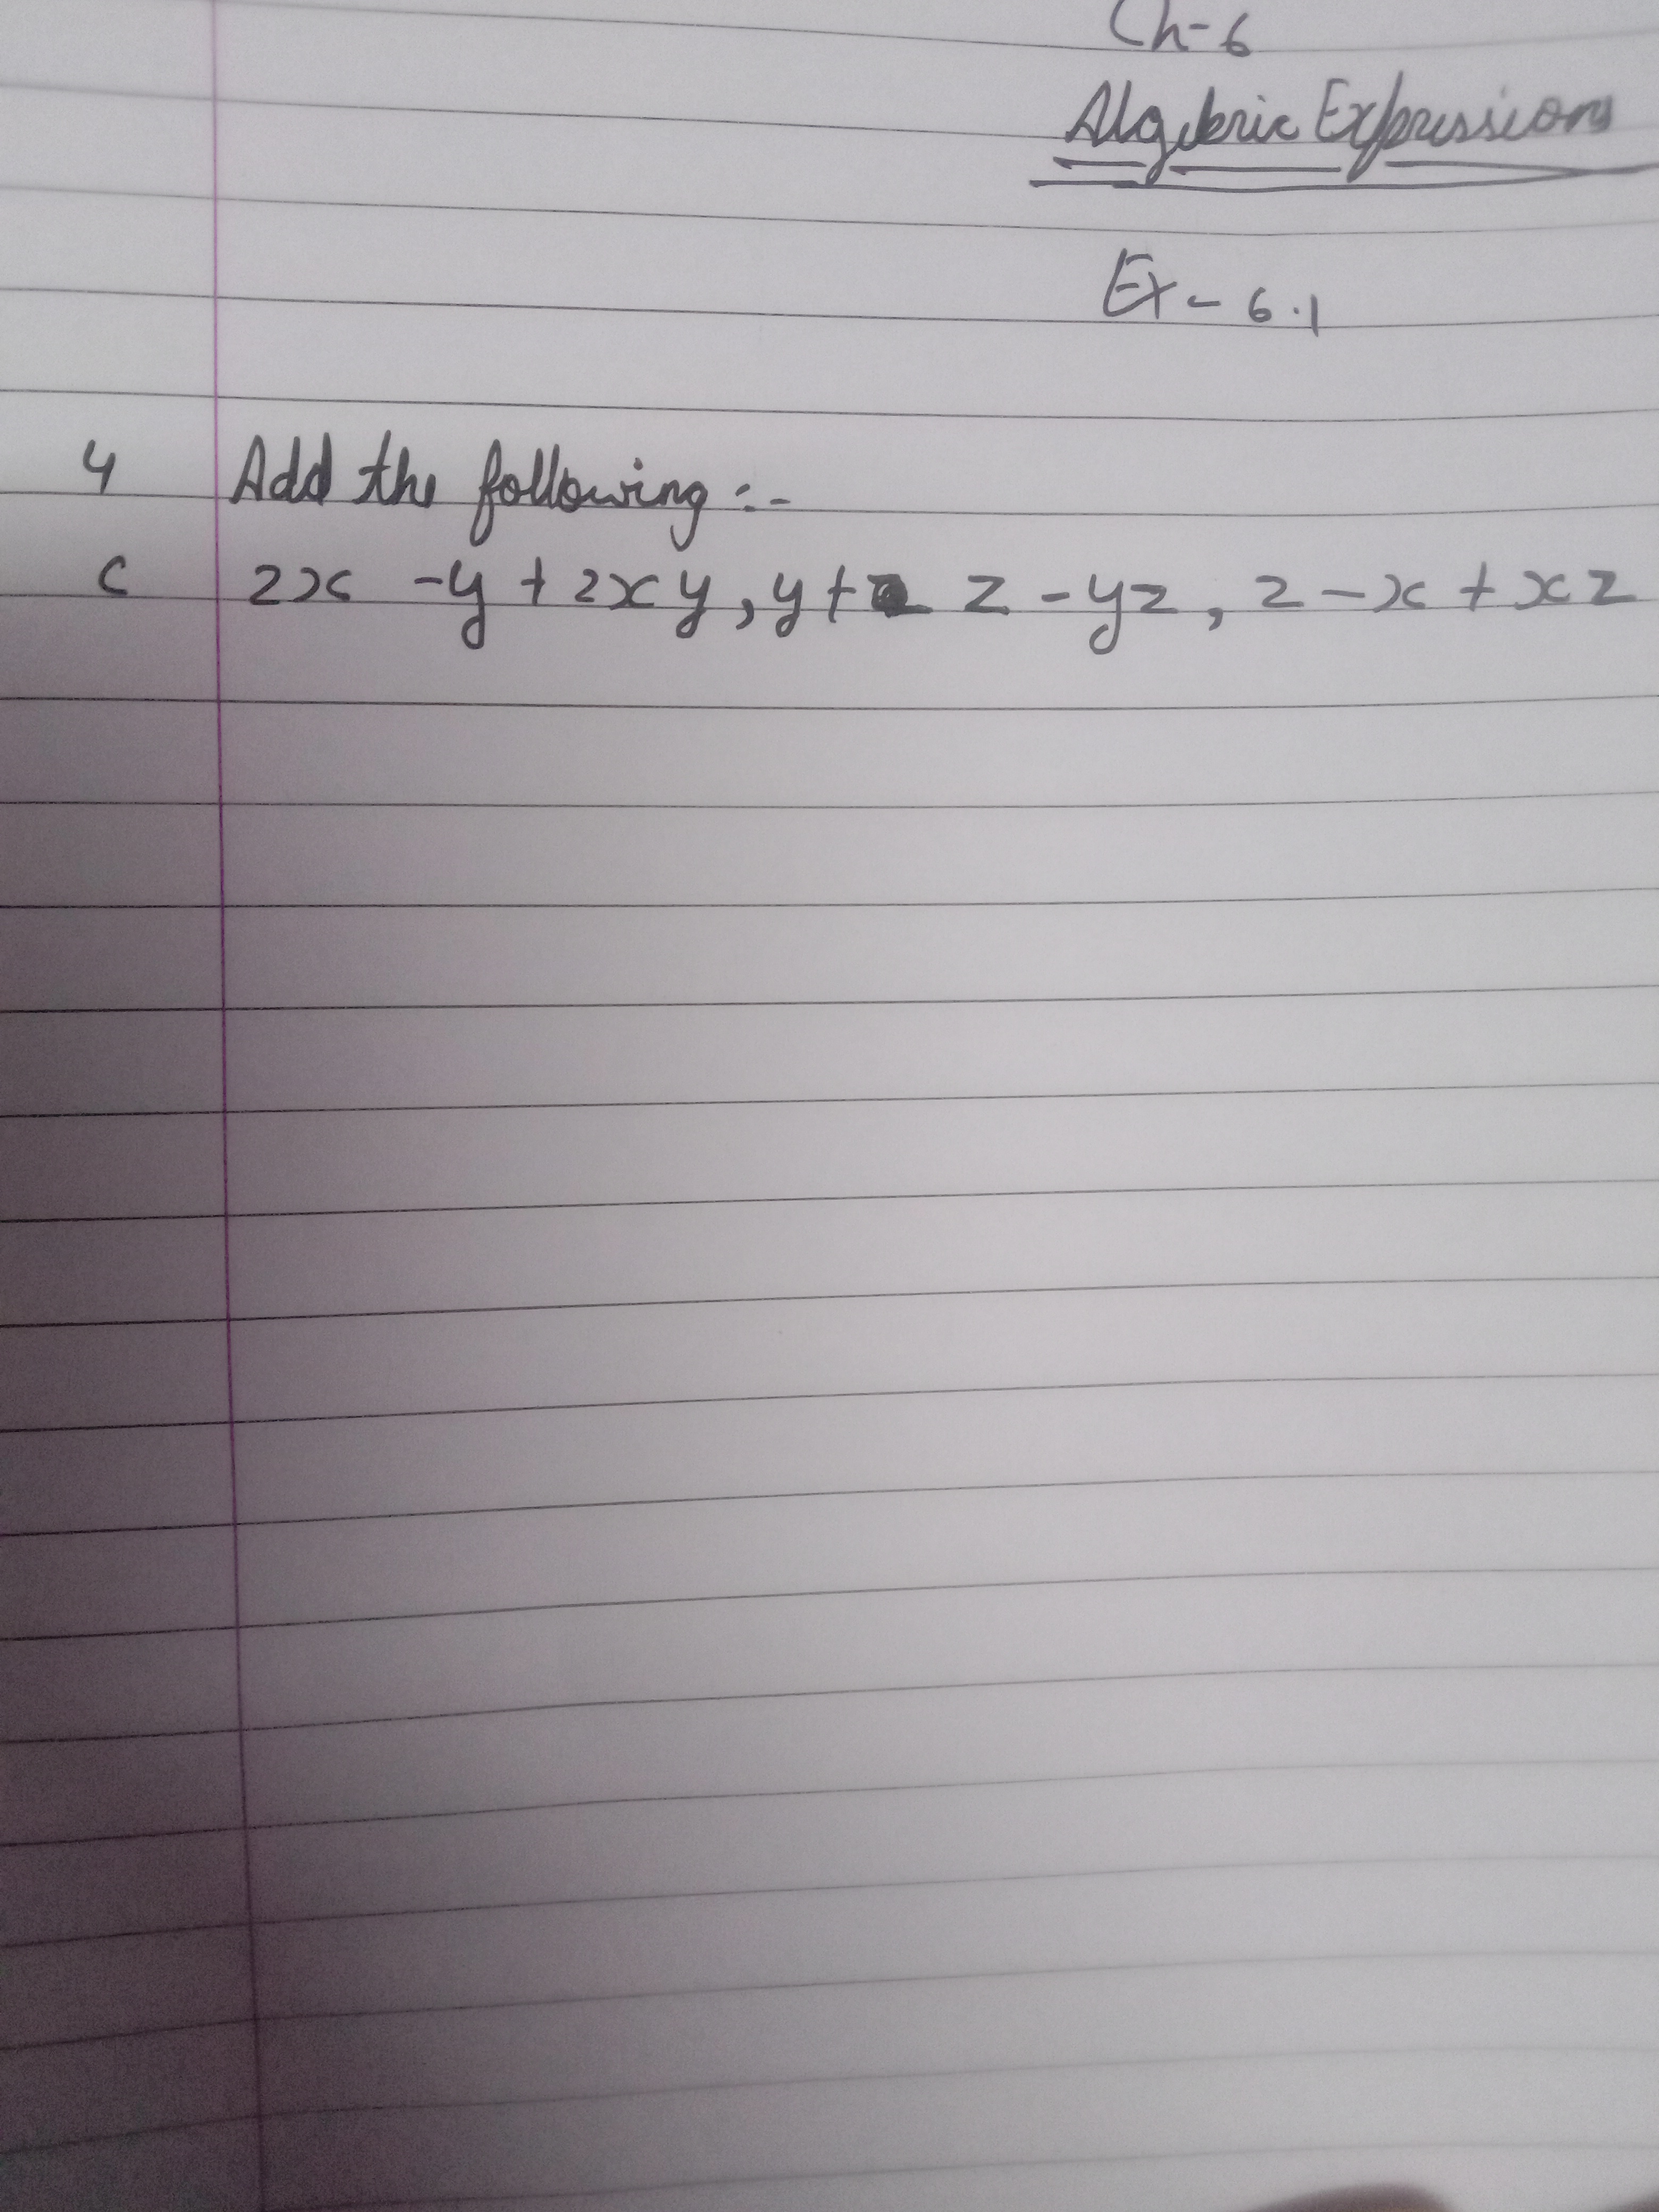 Ch-6
Algebric Expressions
Ex - 6.1
4 Add the following :-
c 2x - y + 2xy, y + z - yz, z - x + xz